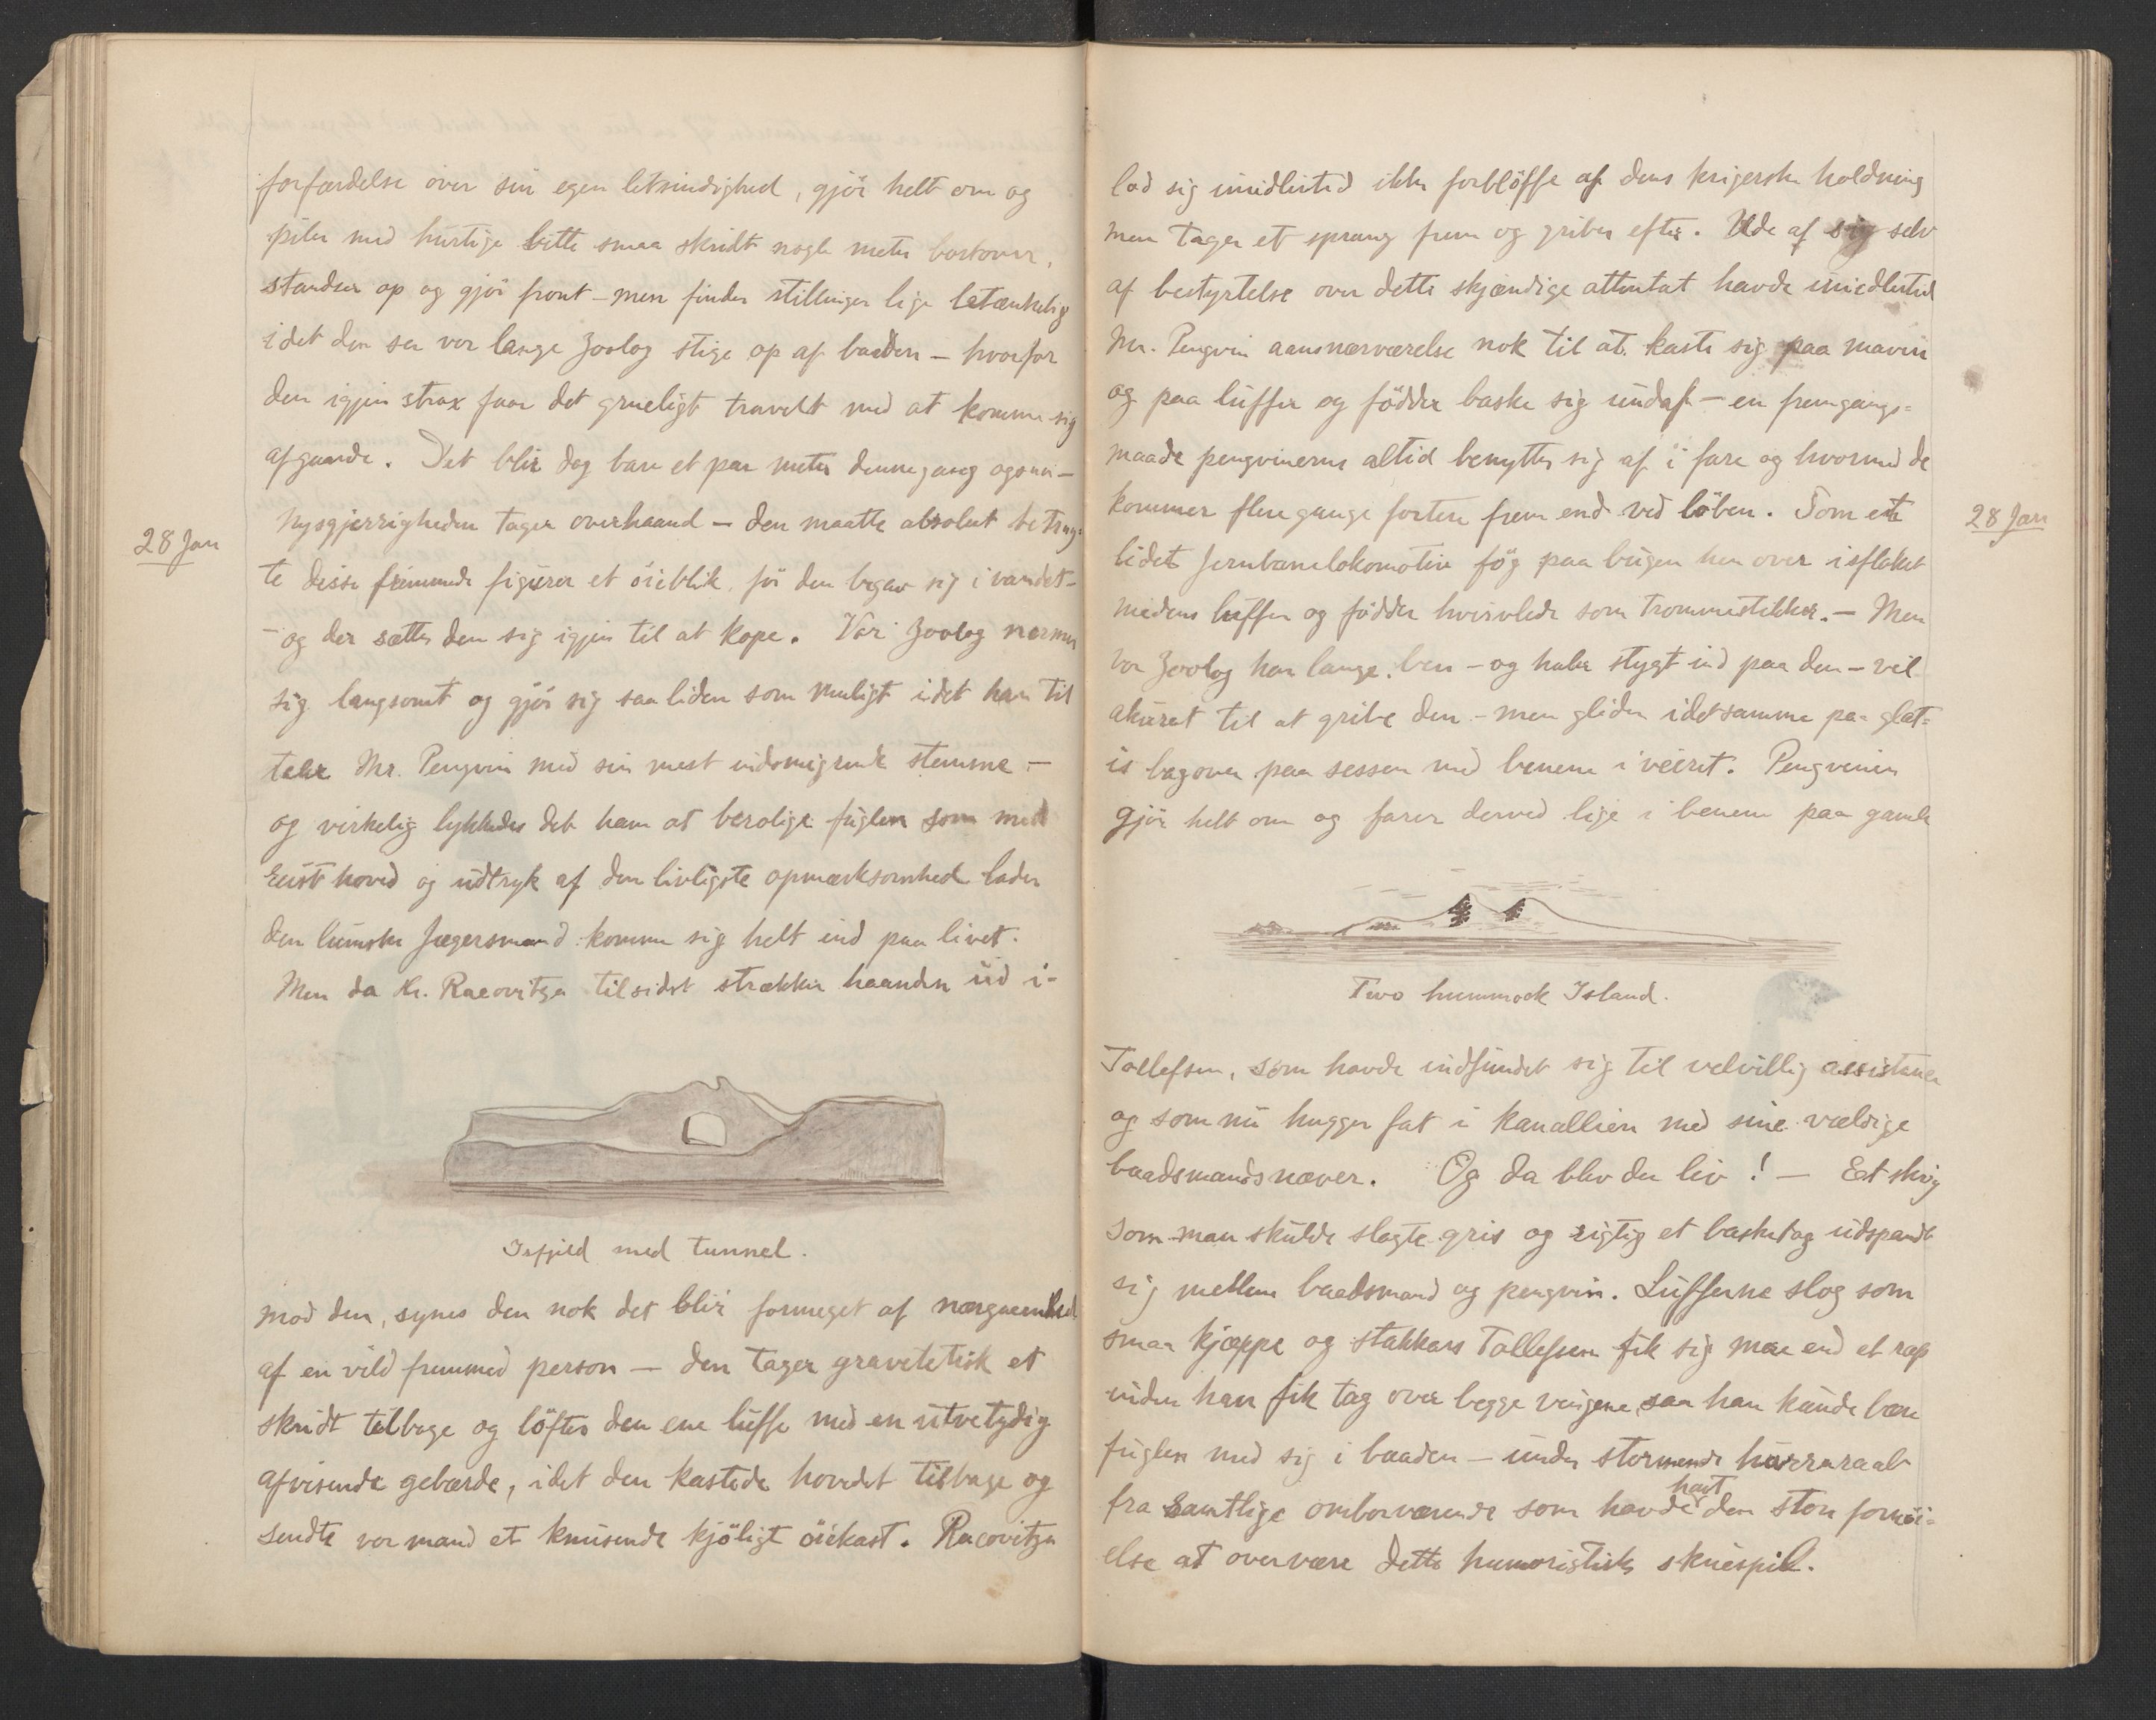 forfærdelse over sin egen letsindighed, gjör helt om og
piler med hurtige bitte smaa skridt nogle meter bortover,
standser op og gjör front – men finder stillingen lige betænkelig
idet den ser vor lange zoolog stige op af baaden – hvorfor
den igjen strax faar det grueligt travelt med at komme sig
afgaarde. Det blir dog bare et par meter dennegang ogsaa –
28 Jan
nysgjerrigheden tager overhaand – den maatte absolut betrag-
te disse fremmede figurer et öieblik, för den begav sig i vandet –
– og der sætter den sig igjen til at kope. Vor zoolog nærmer
sig langsomt og gjör sig saa liden som muligt idet han til
taler Mr. Pengvin med sin mest indsmigrende stemme –
og virkelig lykkedes det ham at berolige fuglen som med
löist hoved og udtryk af den livligste opmærksomhed lader
den lumske Jægersmand komme sig helt ind paa livet.
Men da Hr. Racovitza tilsidst strækker haanden ud i-
Isfjeld med tunnel.
mod den, synes den nok det blir formeget af nærgaaenhed
af en vild fremmed person – den tager gravitetisk et
skridt tilbage og löfter den ene luffe med en utvetydig
afvisende gebærde, idet den kastede hovedet tilbage og
sendte vor mand et knusende kjöligt öiekast. Racovitza
lod sig imidlertid ikke forblöffe af dens krigerske holdning
men tager et sprang frem og griber efter. Ude af sig selv
af bestyrtelse over dette skjændige attentat havde imidlertid
Mr. Pengvin aansnærværelse nok til at kaste sig paa maven
og paa luffer og födder baske sig undaf – en fremgangs-
maade pengvinerne altid benytter sig af i fare og hvormed de
kommer flere gange fortere frem end ved löben. Som et
28 Jan
lidet Jernbanelokomotiv fög paa bugen hen over isflaket
medens luffer og födder hvirvlede som trommestikker. – Men
vor zoolog har lange ben – og haler stygt ind paa den – vil
akurat til at gribe den – men glider idetsamme paa glat-
is bagover paa sessen med benene i veiret. Pengvinen
gjör helt om og farer derved lige i benene paa gamle
Two hummock Island.
Tollefsen, som havde indfundet sig til velvillig assistance
og som nu hugger fat i kanallien med sine vældige
baadsmandsnæver. Og da blev der liv! – Et skrig
som man skulde slagte gris og rigtig et basketag udspandt
sig mellem baadsmand og pengvin. Lufferne slog som
smaa kjæppe og stakkars Tollefsen fik sig mere end et rap
inden han fik tag over begge vingene, saa han kunde bære
fuglen med sig i baaden – under stormende hurraraab
fra samtlige ombordværende som havde havt den store fornöi-
else at overvære dette humoristiske skuespil.